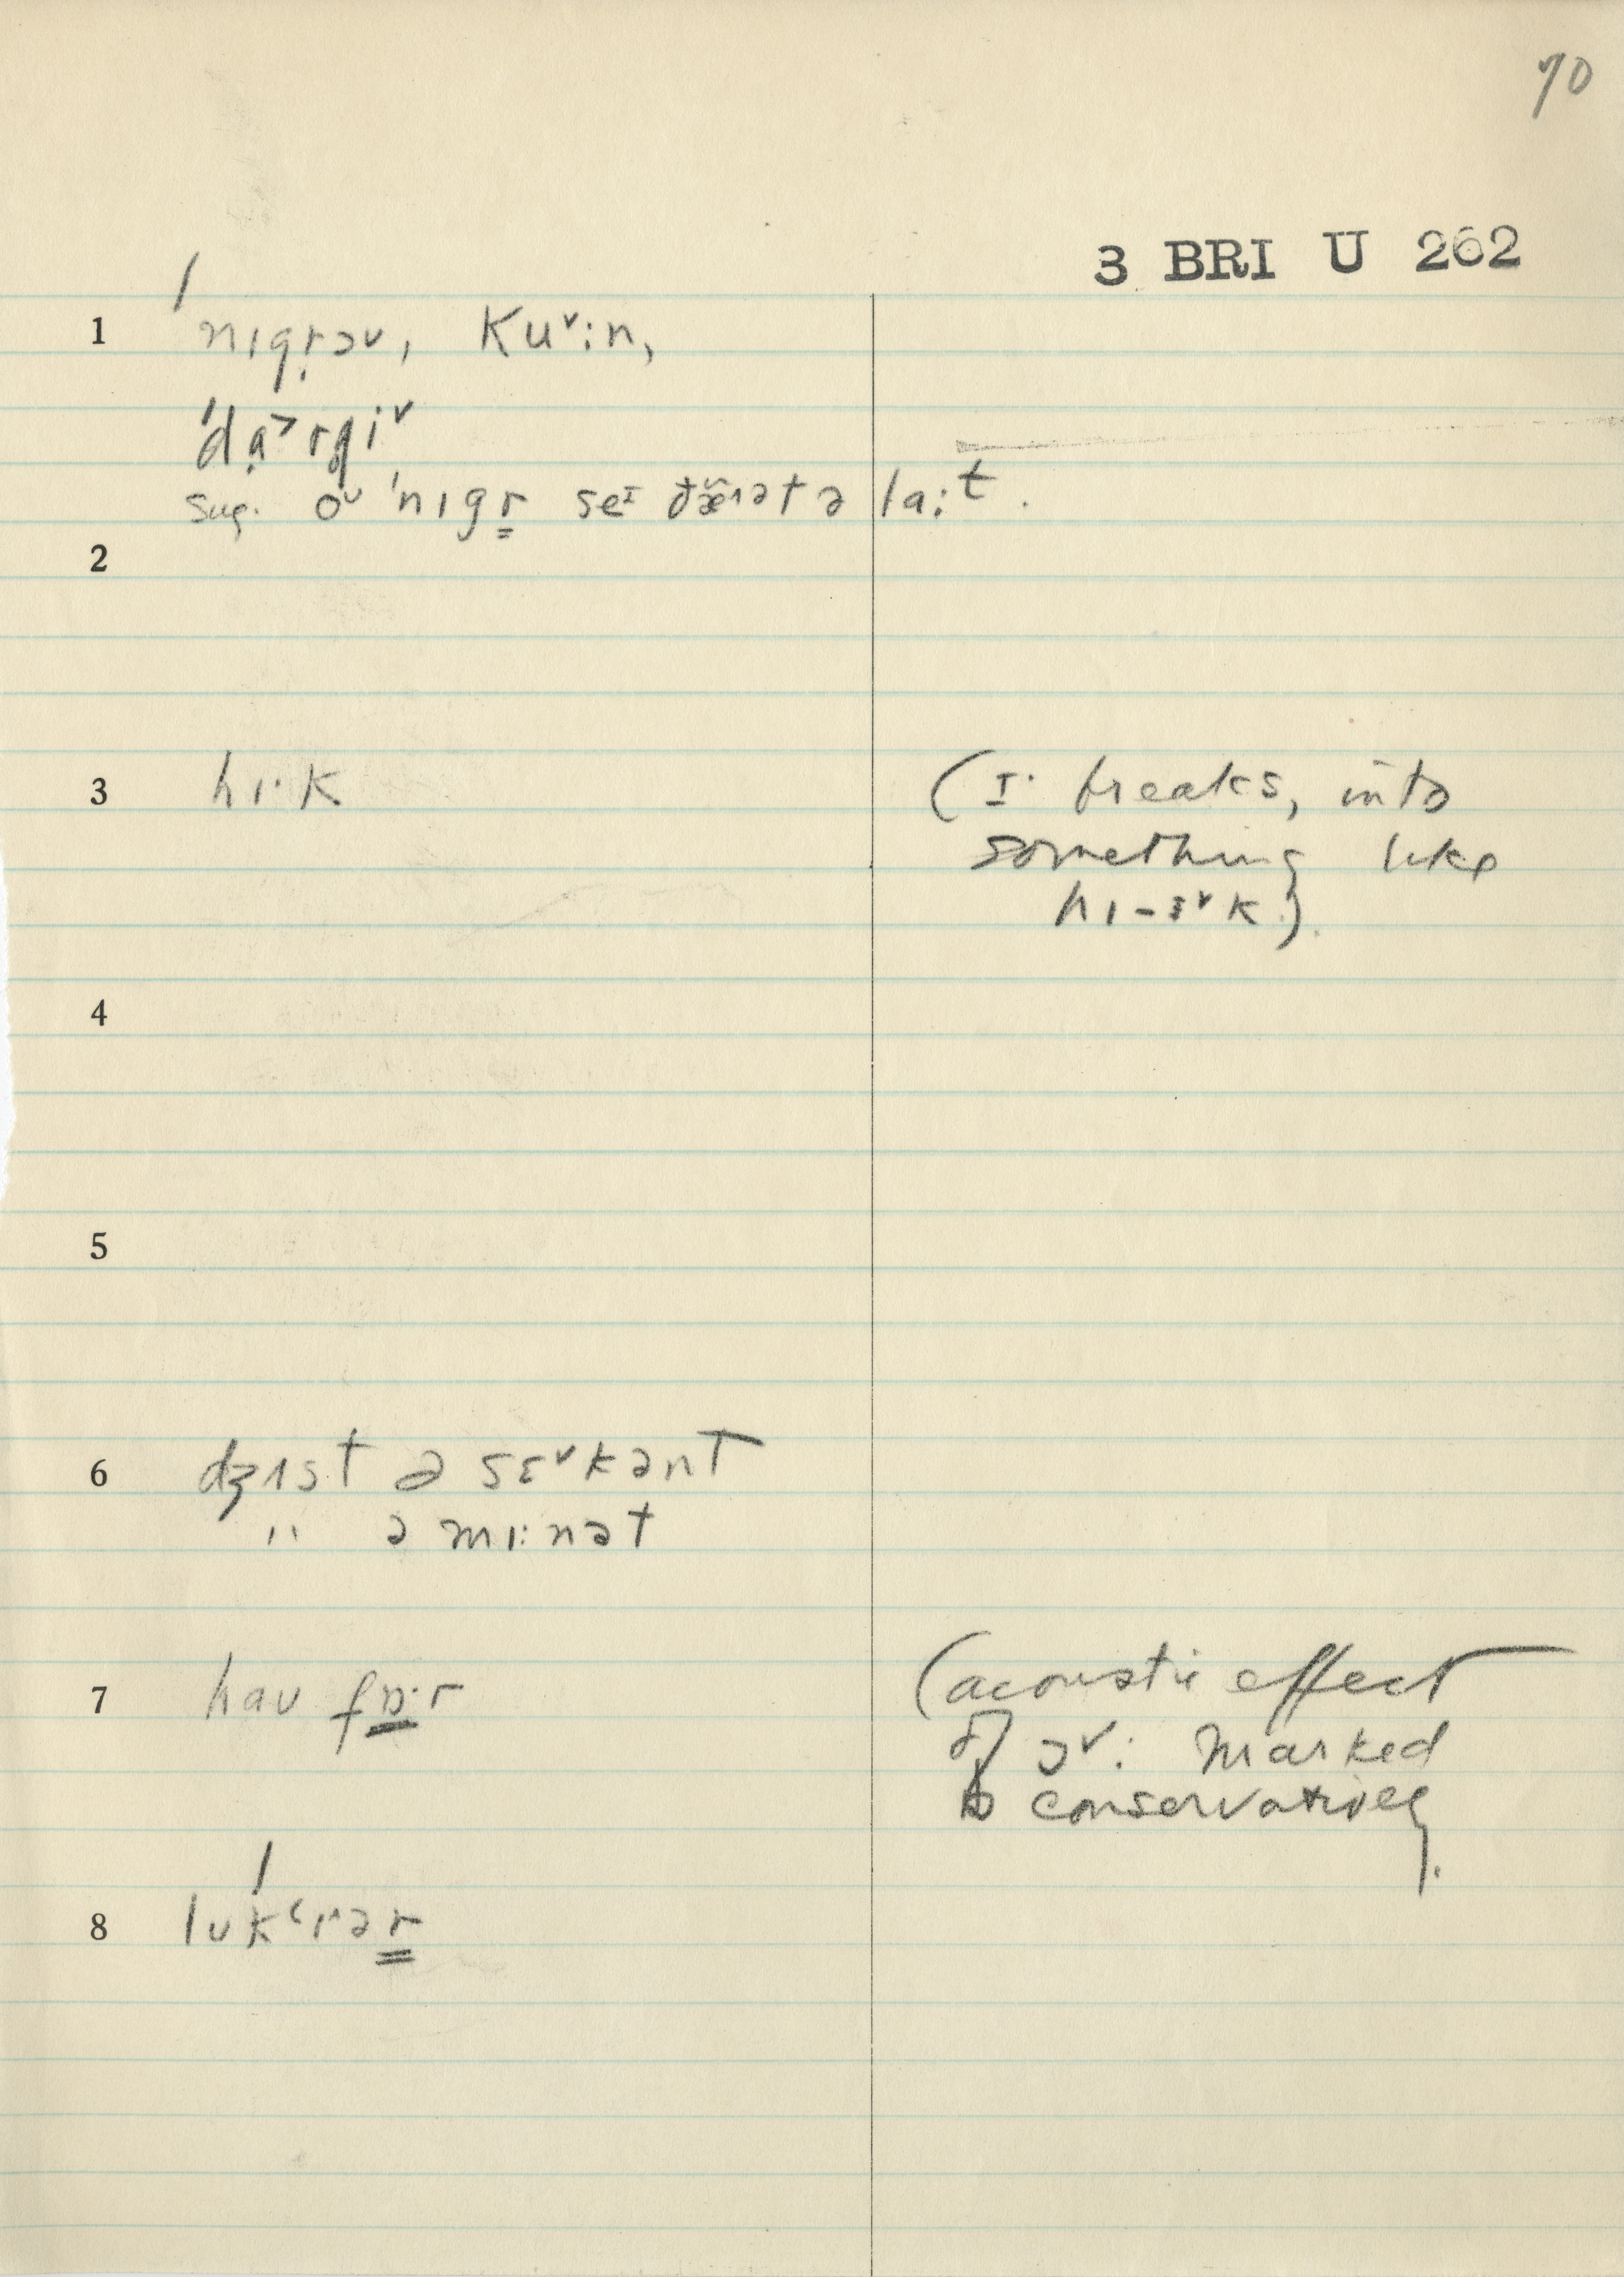 70
3 BRI U 262
1 ˈnɪgr̩əʊ, Kuᵛ:n,
ˈdạ˃rgiᵛ
sug. oᵛ ˈnɪgr̳ seɪ ə la:t.
2
3 hɪ·K (I· breaks, into
something like
hɪ-ɪᵛK).
4
5
6 dʒɪst ə sɛᵛkənt
" ə mɪ:nət
7 haʊ fɒ̲·r (acoustic effect
of ɔᵛ: marked
conservatively.
8 ˈlʊkʻɪ^ər̳